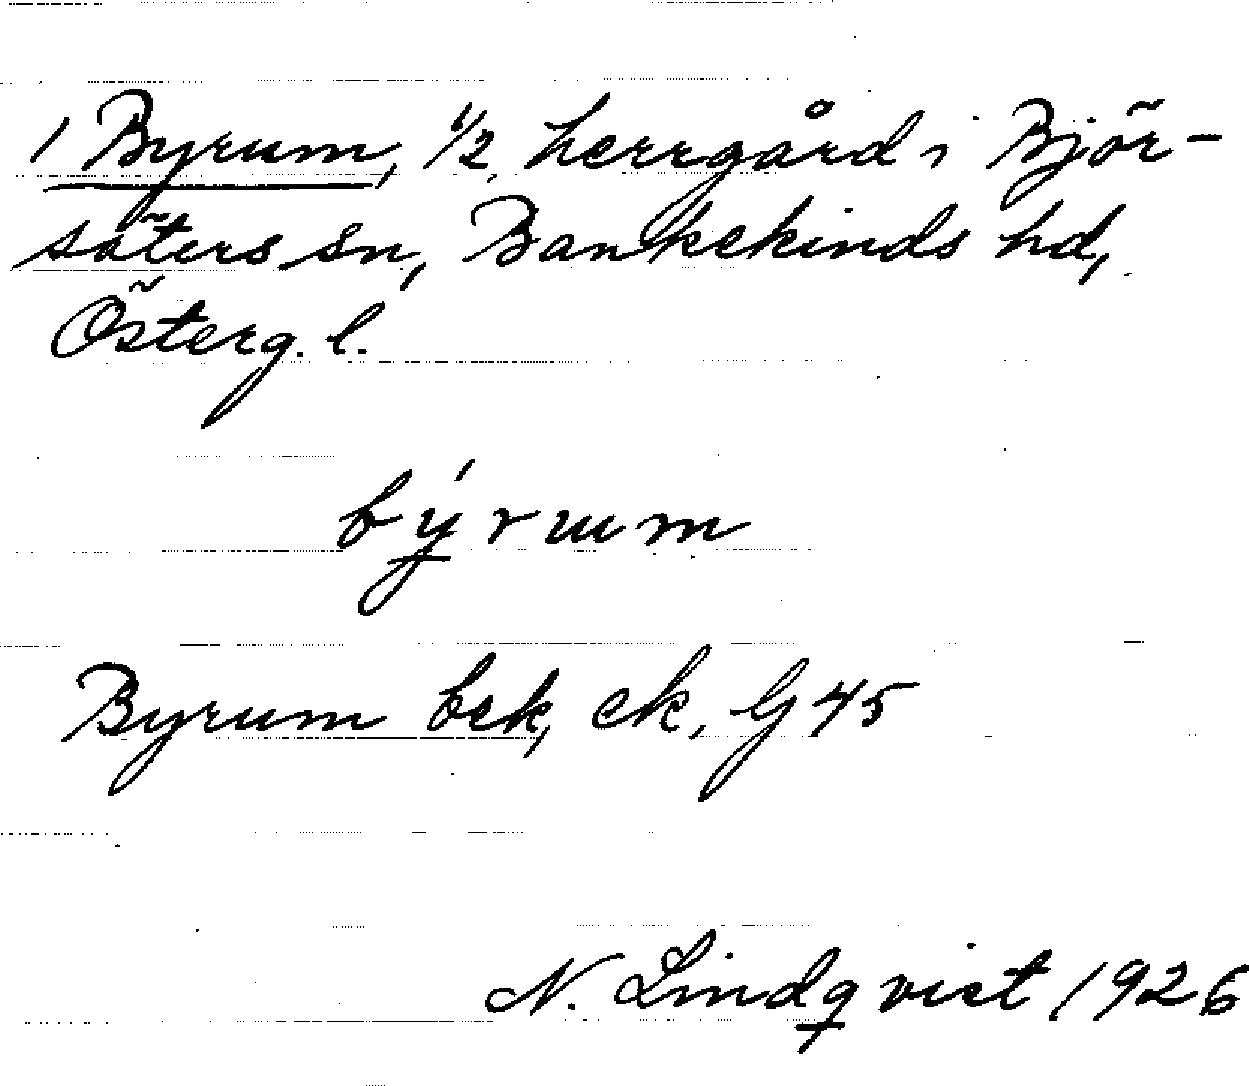 1 Byrum, 1/2, herrgård i Björ-
säters sn, Bankekinds hd,
Österg. l.
býrum
Byrum bek, ek, G 45
N. Lindqvist 1926